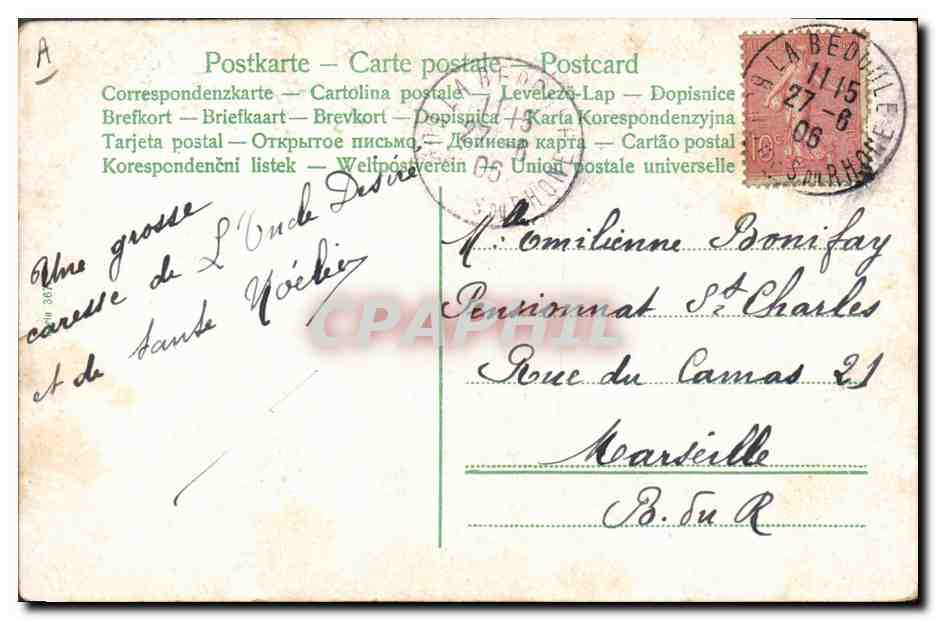 A
Postkarte – Carte postale – Postcard
Correspondenzkarte – Cartolina postale – Levelező-Lap – Dopisnice
Brefkort – Briefkaart – Brevkort – Dopisnica – Karta Korrespondenzyjna
Tarjeta postal – Открытое письмо – Дописна карта – Cartão postal
Korespondenční listek – Weltpostverein – Union postale universelle
LA BEDOULE
11 15
27 -6
06
BS DU RHONE
10c
LA BEDOULE
11 15
27 -6
06
BS DU RHONE
Une grosse
caresse de L'Oncle Desiré
et de tante Noélie
Mlle Emilienne Bonifay
Pensionnat St Charles
Rue du Camas 21
Marseille
B. du R
CPAPHIL